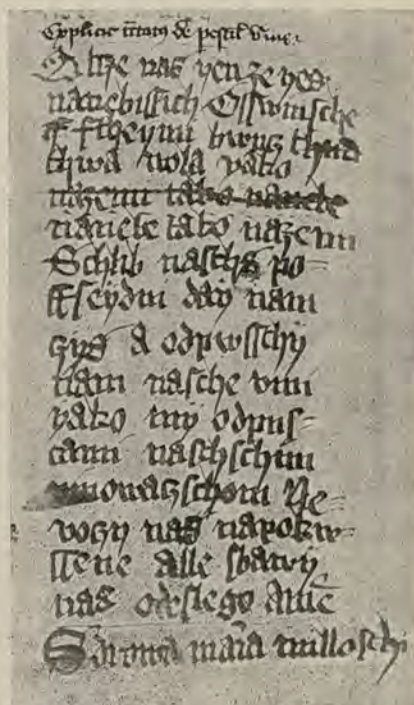 Explicit tctatus de pestil
Otcze nas yenze yes
nanebissich Osswenische
ymi bwncz
thwa wola yako
nazemi tako nanebe
nanebe tako nazemi
Schlib naschg po=
ffseydni day nam
gyg a odpwsschÿ
nam nasche vini
yako mÿ odpus=
cami naschschim
vinowaczschom Ne=
vogÿ nas napokw=
ssene alle sbawÿ
nas odeslego Amē
Sdrowa maria milloschi